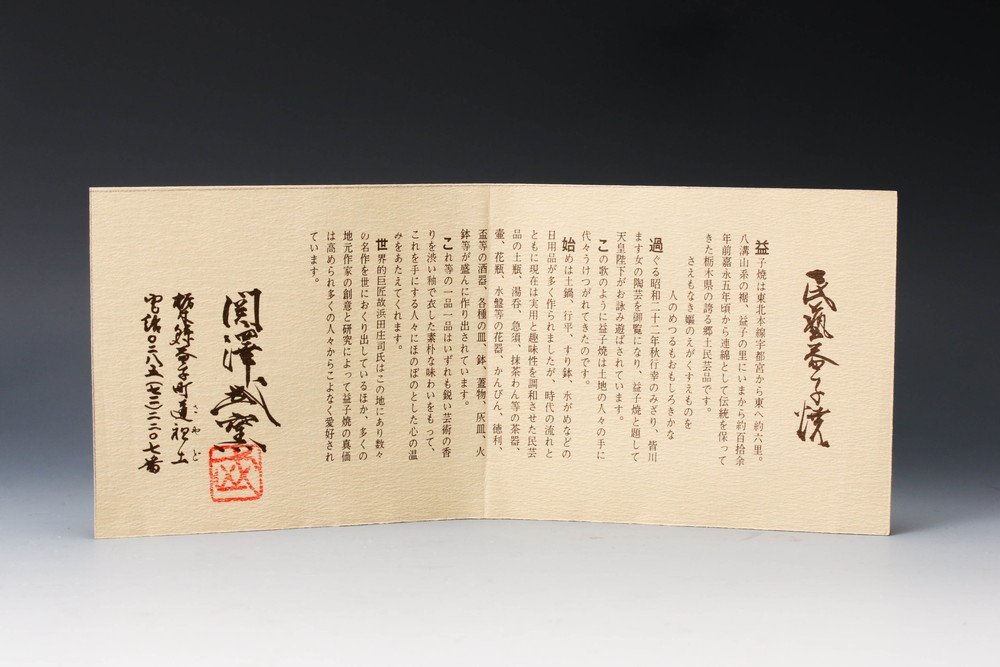 民藝益子焼
益子焼は東北本線宇都宮から東へ約六里。
八溝山系の裾、益子の里にいまから約百拾余
年前嘉永五年頃から連綿として伝統を保って
きた栃木県の誇る郷土民芸品です。
さえもなき嫗のえがくすえものを
人のめつるもおもしろきかな
過ぐる昭和二十二年秋行幸のみぎり、皆川
ます女の陶芸を御覧になり、益子焼と題して
天皇陛下がお詠み遊ばされています。
この歌のように益子焼は土地の人々の手に
代々うけつがれてきたのです。
始めは土鍋、行平、すり鉢、水がめなどの
日用品が多く作られましたが、時代の流れと
ともに現在は実用と趣味性を調和させた民芸
品の土瓶、湯呑、急須、抹茶わん等の茶器、
壷、花瓶、水盤等の花器、かんびん、徳利、
盃等の酒器、各種の皿、鉢、蓋物、灰皿、火
鉢等が盛んに作り出されています。
これ等の一品一品はいずれも鋭い芸術の香
りを渋い釉で衣した素朴な味わいをもって、
これを手にする人々にほのぼのとした心の温
みをあたえてくれます。
世界的巨匠故浜田庄司氏はこの地にあり数々
の名作を世におくり出しているほか、多くの
地元作家の創意と研究によって益子焼の真価
は高められ多くの人々からこよなく愛好され
ています。
関澤武窯
栃木県益子町道祖土
さやど
電話〇二八五(七二)二二〇七番